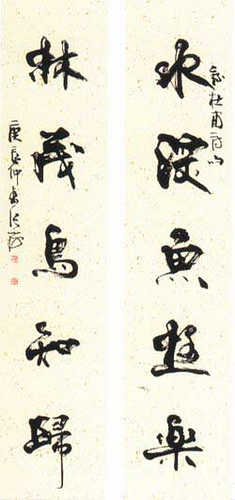 錄杜甫詩句
水深魚極樂
林茂鳥知歸
庚辰仲